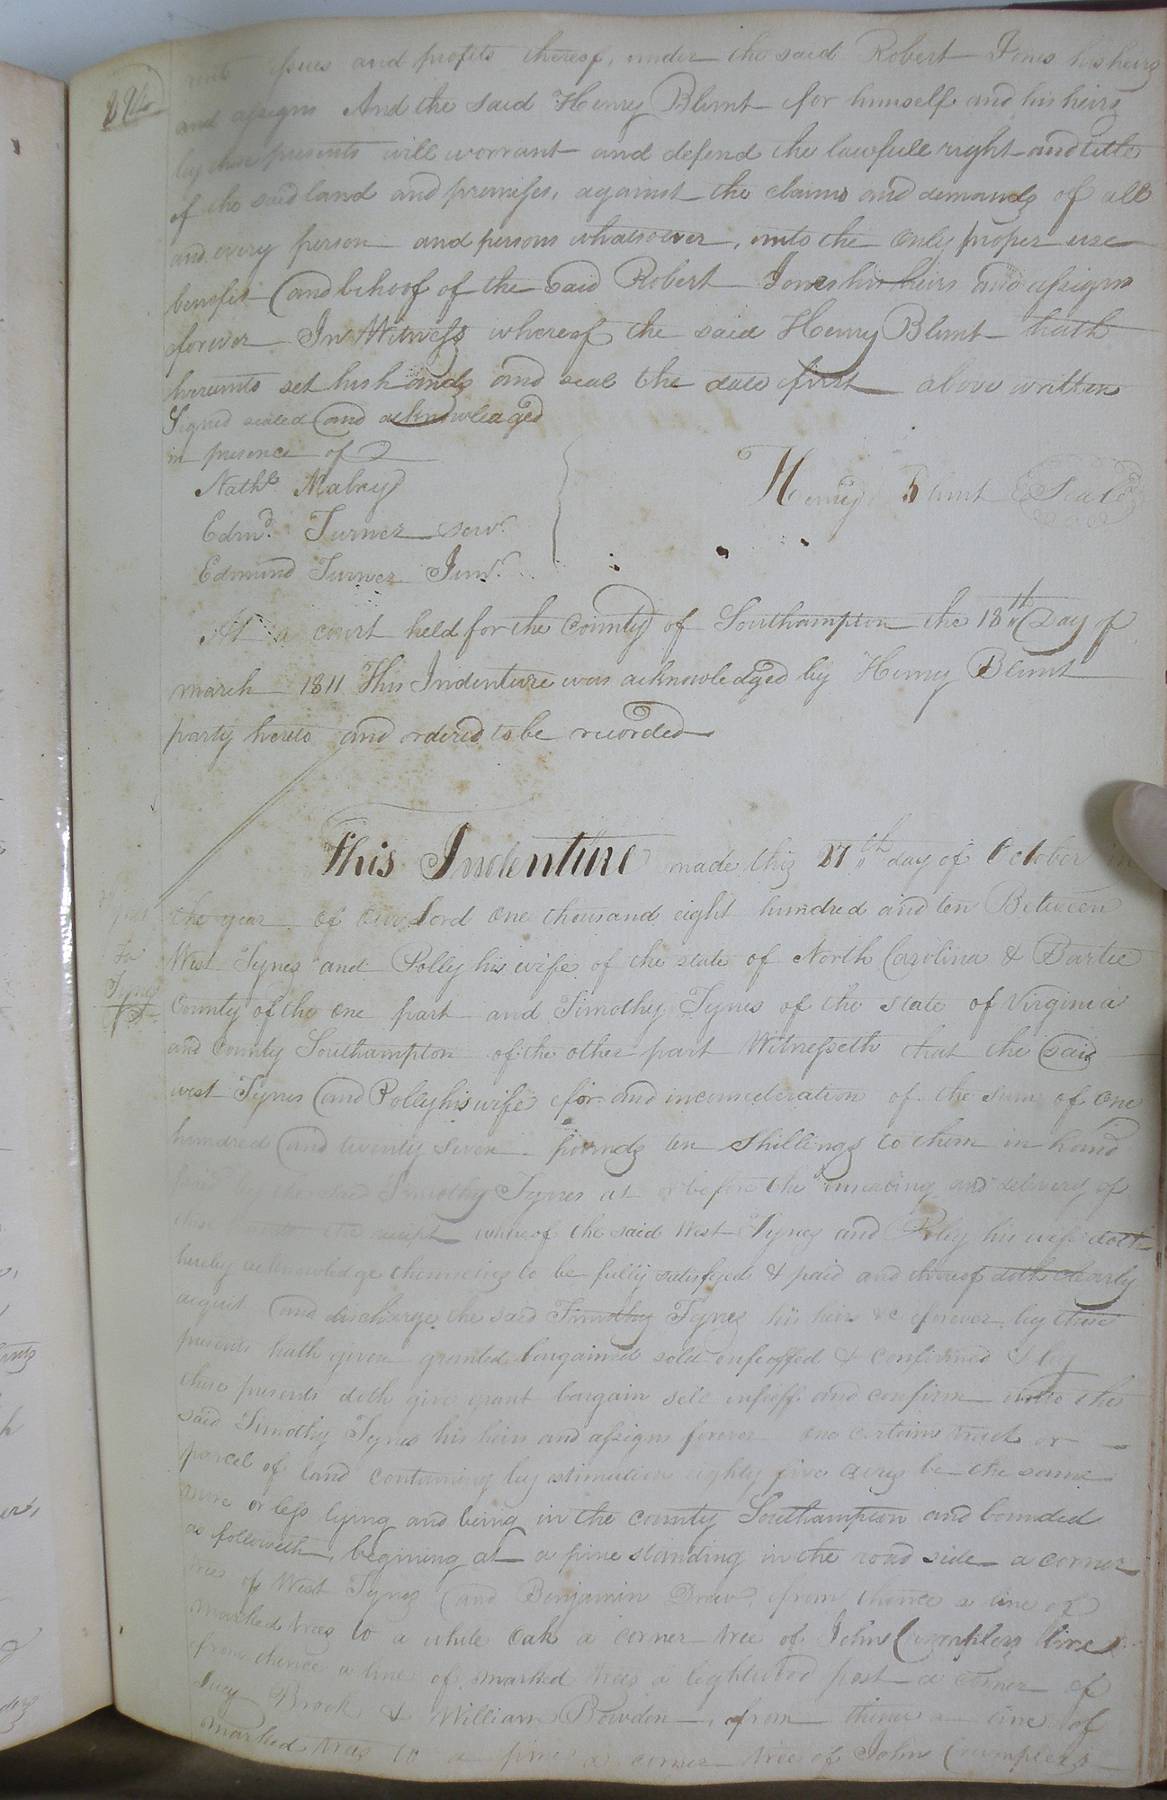 rents issues and profits thereof, under the said Robert Jones his heirs
and assigns And the said Henry Blunt for himself and his heirs
by these presents will worrant and defend the lawfull right and title
of the said land and premises, against the claims and demands of all
and every person and persons whatsoever, unto the only proper use
benefit and behoof of the said Robert Jones his heirs and assigns
forever In Witness whereof the said Henry Blunt hath
hereunto set his hands and seal the date first above written
Signed sealed and acknowledged
in presence of
Nathl. Mabry
Henry Blunt Seal
Edmd. Turner senr.
Edmund Turner Junr.
At a court held for the County of Southampton the 18th Day of
march 1811 This Indenture was acknowledged by Henry Blunt
party hereto and ordered to be recorded
This Indenture made this 27th day of October in
the year of our Lord One thousand eight hundred and ten Between
West Tynes and Polly his wife of the state of North Carolina & Bartee
To
Tynes
County of the One part and Timothy Tynes of the state of Virginia
and County Southampton of the other part Witnesseth that the said
west Tynes and Polly his wife for and inconsideration of the sum of One
hundred and twenty seven pounds ten Shillings to them in hand
paid by the said Timothy Tynes at & before the ensealing and delivery of
these the receipt whereof the said West Tynes and Polly his wife doth
hereby acknowledge themselves to be fully satisfyed & paid and thereof doth clearly
acquit and discharge the said Timothy Tynes his heirs &c forever by these
presents hath given granted bargained sold enfeoffed & confirmed & by
these presents doth give grant bargain sell enfeoff and confirm unto the
said Timothy Tynes his heirs and assigns forever one certain tract or
parcel of land containing by estimation eighty five acres be the same
more or less lying and being in the county Southampton and bounded
as followeth, begining at a pine standing in the road side a corner
tree of West Tynes and Benjamin Drew from thence a line of
marked trees to a white Oak a corner tree of John Crumplers line
from thence a line of marked trees a lightwood post a corner of
Lucy Brock & William Bowden, from thence a line of
marked trees to a pine a corner tree of John Crumplers